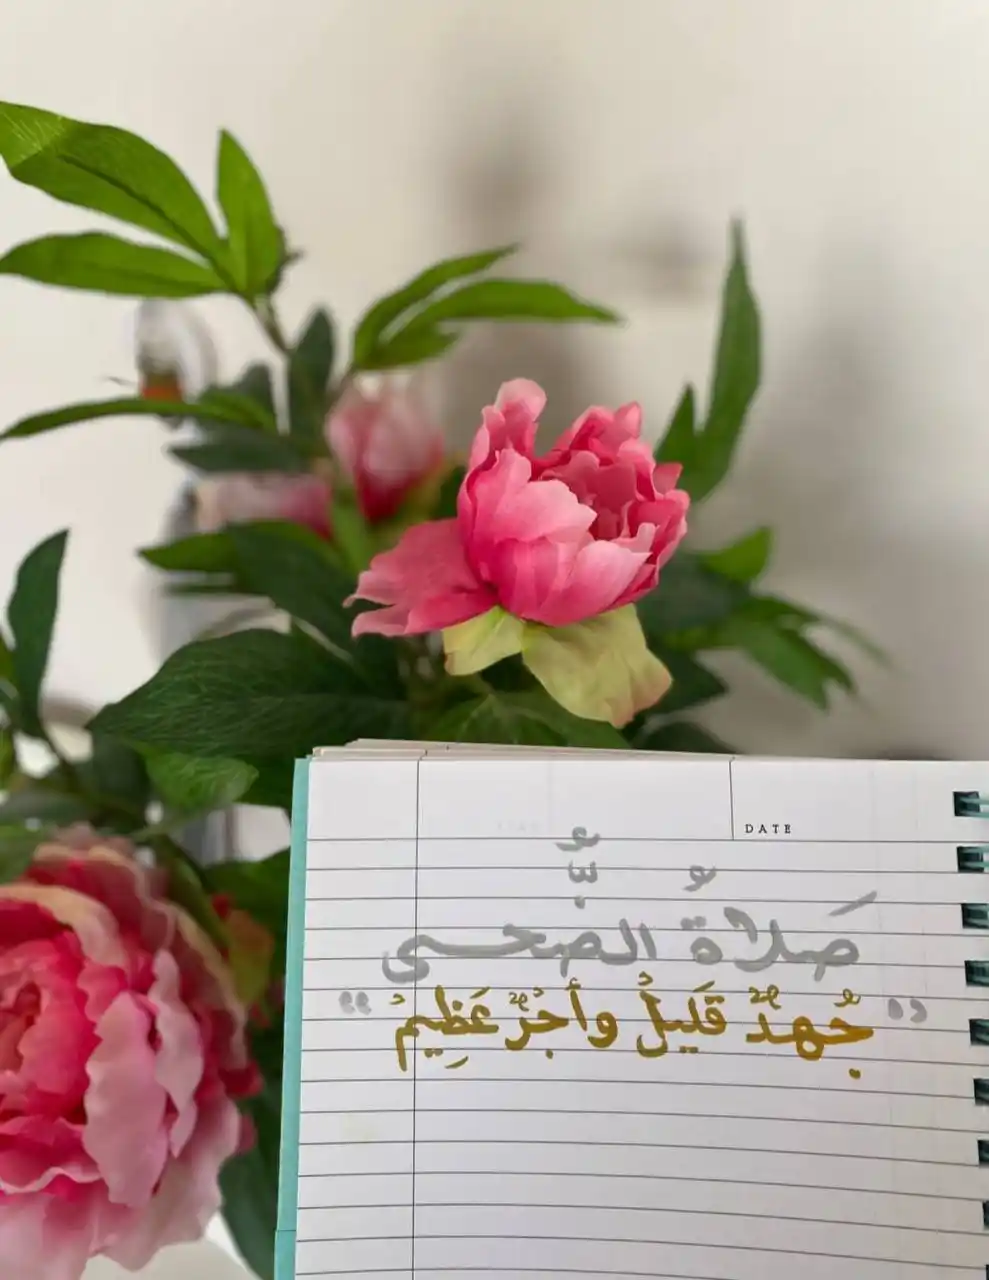 DATE
صَلاةُ الضُّحى
"جُهدٌ قَليلٌ وأجرٌ عَظِيمٌ"